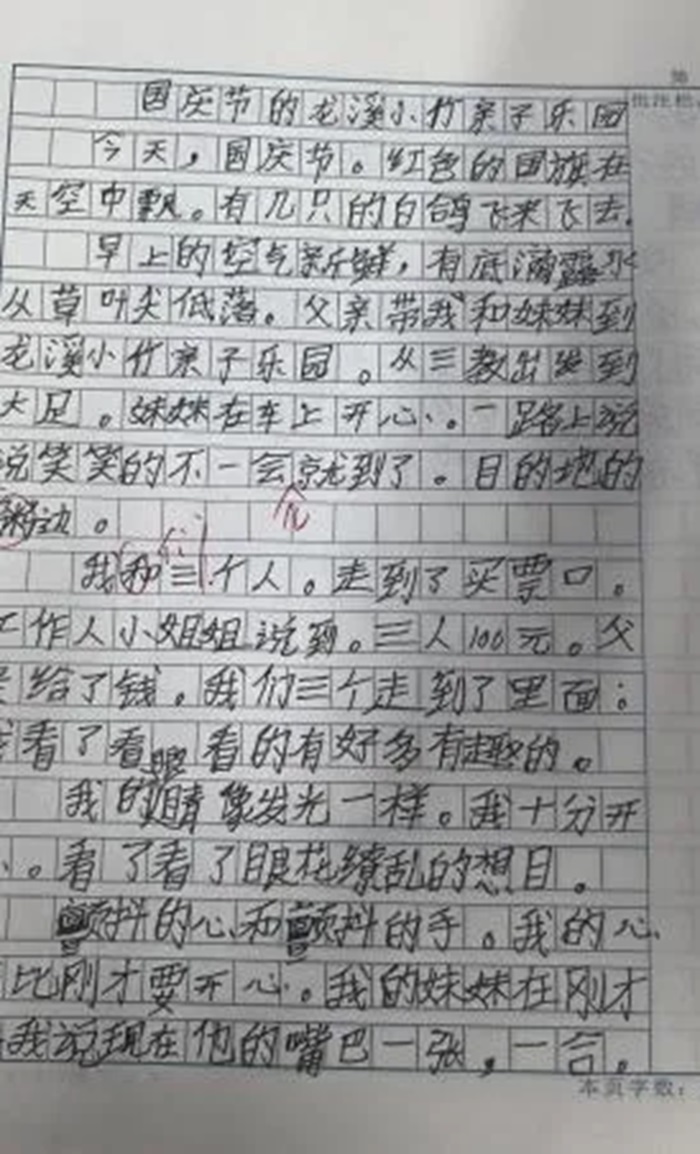 第
批注栏
国庆节的龙溪小竹亲子乐园
今天，国庆节。红色的国旗在
天空中飘。有几只的白鸽飞来飞去.
早上的空气新鲜，有底滴露水
从草叶尖低落。父亲带我和妹妹到
龙溪小竹亲子乐园。从三教出发到
大足。妹妹在车上开心。一路上说
说笑笑的不一会就到了。目的地的
动。
我和三个人。走到了买票口。
工作人小姐姐说到。三人100元。父
给了钱。我们三个走到了里面：
我看了看眼看的有好多有趣的。
我的眼睛像发光一样。我十分开
心。看了看了眼花缭乱的想目。
颤抖的心和颤抖的手。我的心
比刚才要开心。我的妹妹在刚才
我说现在他的嘴巴一张，一合。
本页字数：